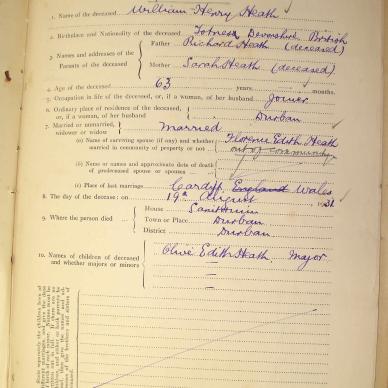 1. Name of the deceased William Henry Heath
2. Birthplace and Nationality of the deceased Totnes, Devonshire British
3. Names and addresses of the Parents of the deceased
Father Richard Heath (deceased)
Mother Sarah Heath (deceased)
4. Age of the deceased 63 years, months.
5. Occupation in life of the deceased, or, if a woman, of her husband Joiner
6. Ordinary place of residence of the deceased, or, if a woman, of her husband Durban
7. Married or unmarried, widower or widow Married
(a) Name of surviving spouse (if any) and whether married in community of property or not Florence Edith Heath
out of community
(b) Name or names and approximate dates of death of predeceased spouse or spouses
(c) Place of last marriage Cardiff, England Wales
8. The day of the decease: on 19th August 1931
9. Where the person died
House Sanitorium
Town or Place Durban
District Durban
10. Names of children of deceased and whether majors or minors Olive Edith Heath. Major